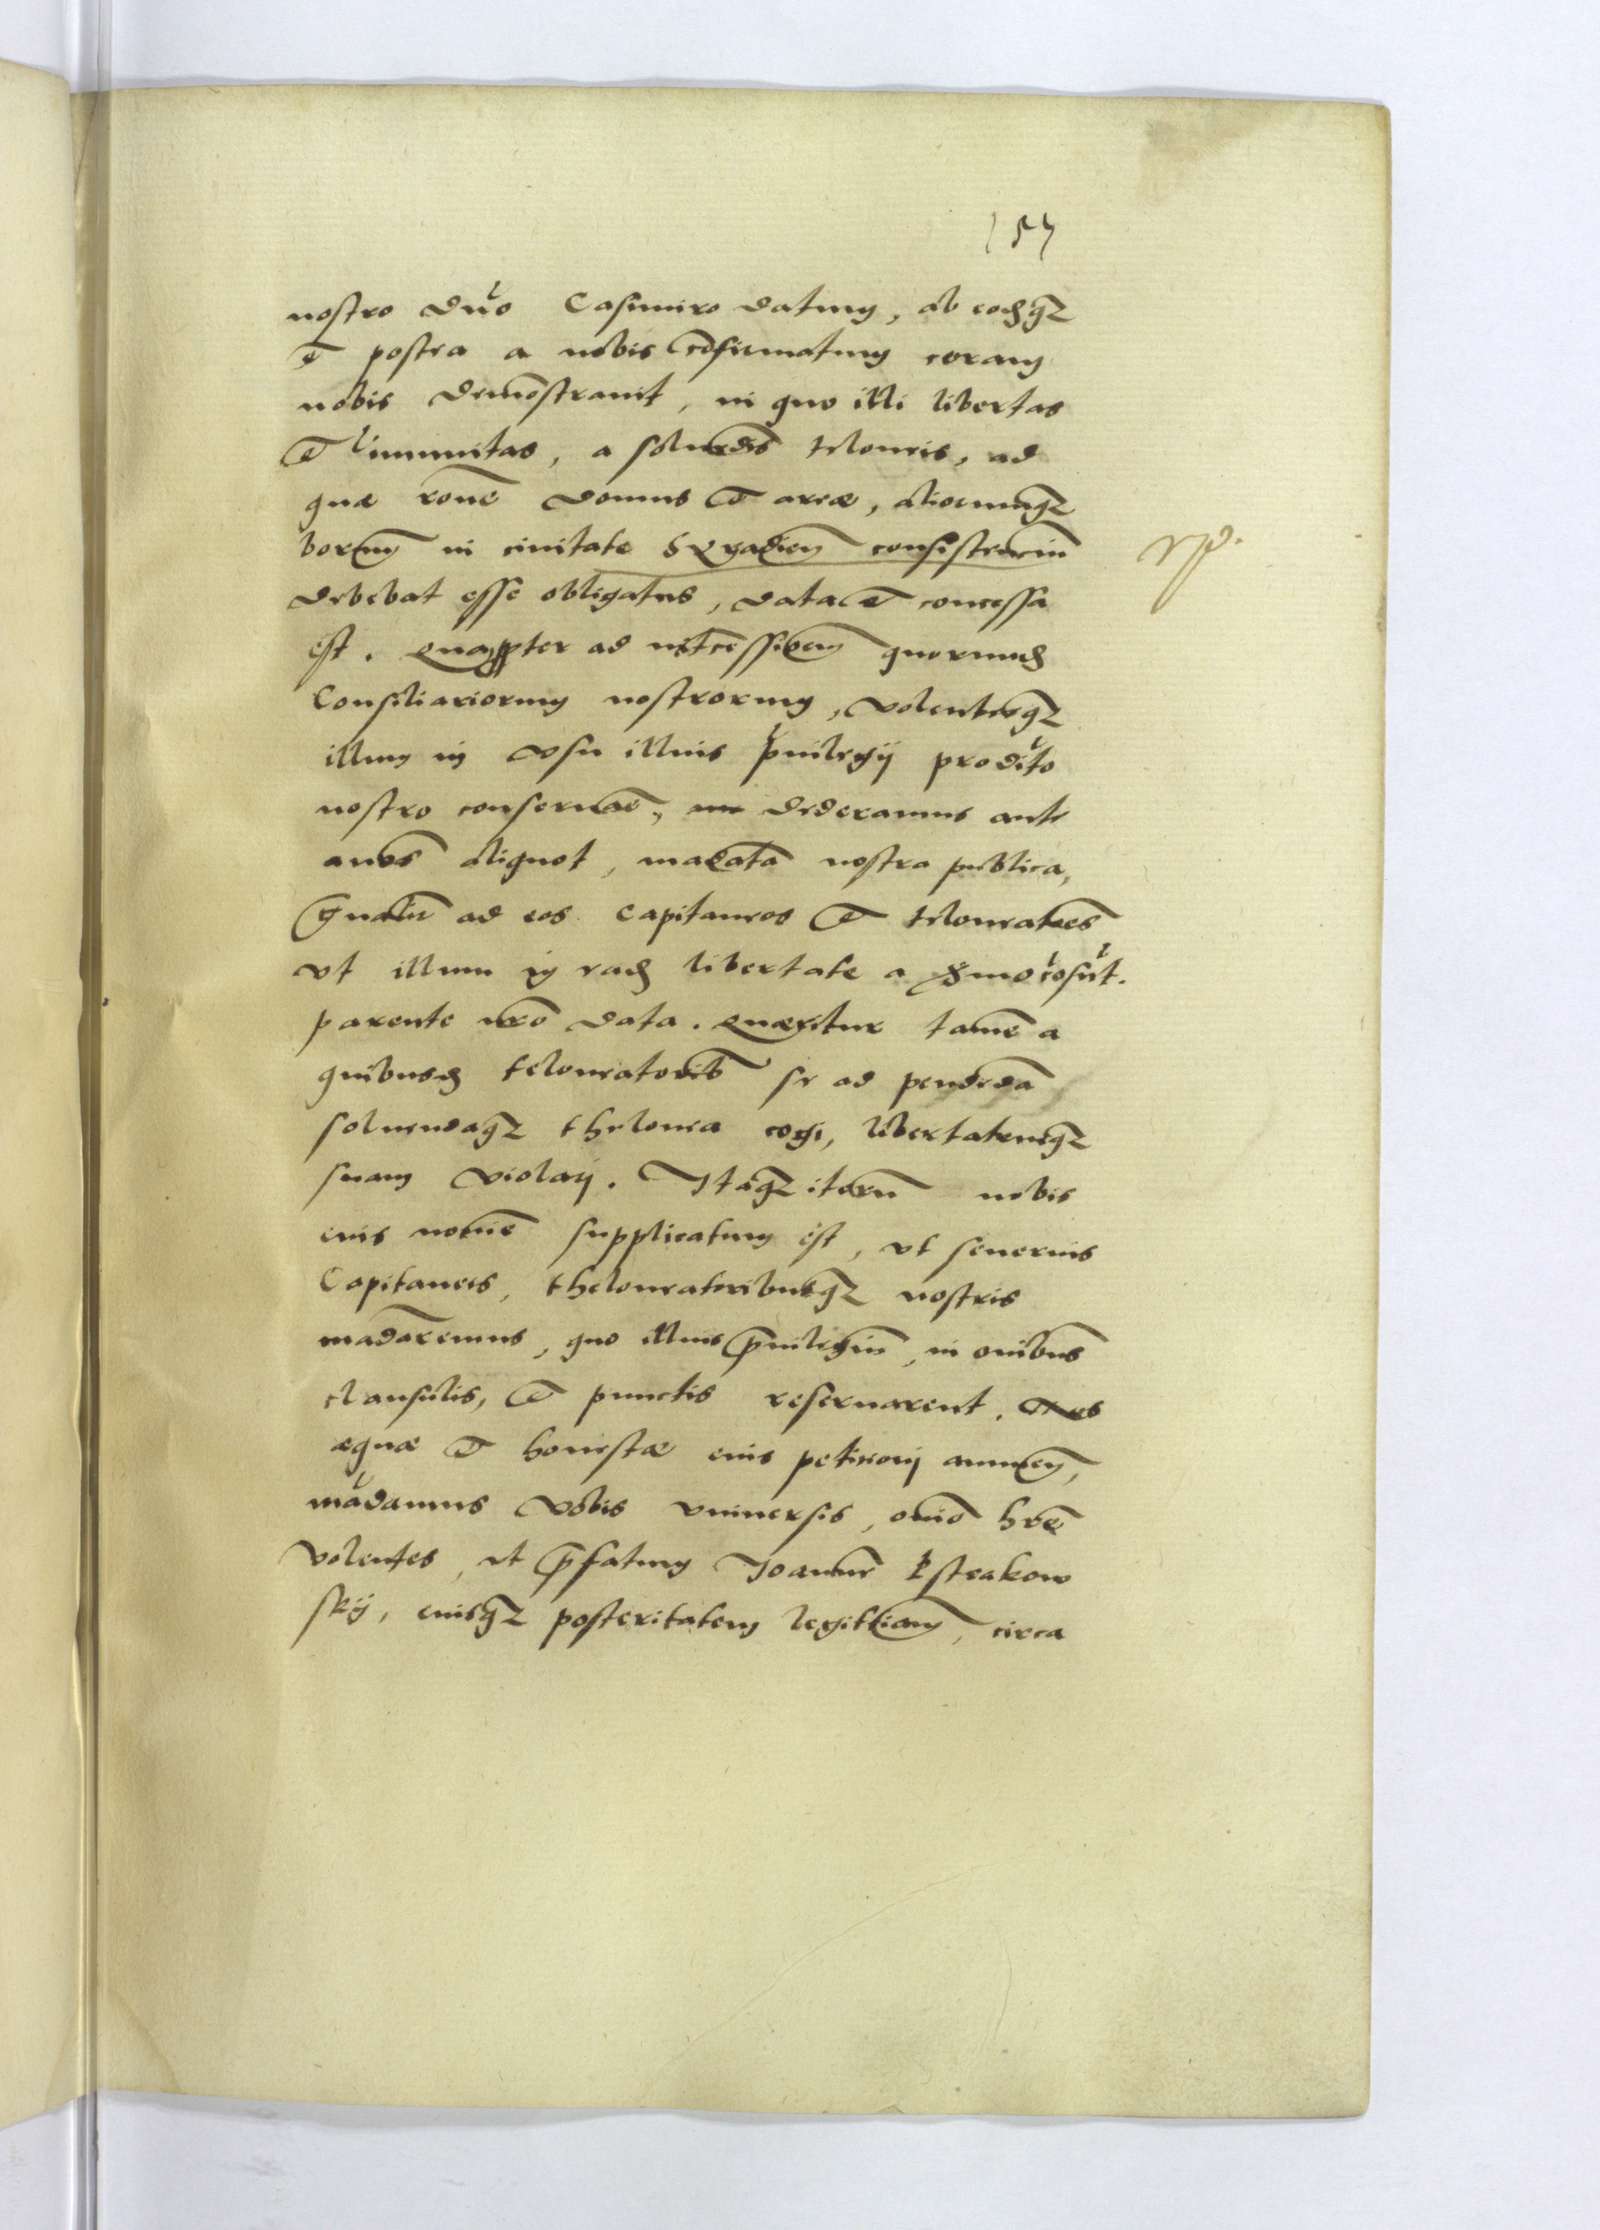 157
nostro dño Casimiro datum, ab eodẽqꝫ
et postea a nobis cõfirmatum coram
nobis demõstravit, in quo illi libertas
et immunitas, a solvẽdis teloneis, ad
quæ rõne domus et areæ, aliorumqꝫ
bonorum in civitate Siradieñ consistenciũ
debebat esse obligatus, data et concessa
est. Quapp̱ter ad intercessionem quorumdã
Consiliariorum nostrorum, volentesqꝫ
illum in usu illius privilegij prædicto
nostro conservare, dederamus ante
annos aliquot, mãdata nostra publica,
gñalia ad eos Capitaneos et teloneatores
ut illum in eadẽ libertate a
parente nr̃o data. Quæritur tamẽ a
quibusdã teloneatorib se ad pendẽda
solvendaqꝫ thelonea cogi, libertatemqꝫ
suam violarj. Itaqꝫ iterũ nobis
eius nomine supplicatum est, ut severius
Capitaneis, theloneatoribusqꝫ nostris
mãdaremus, quo illius privilegiũ, in oñibus
clausulis, et punctis reservarent. Nos
æquæ et honestæ eius petitionj annueñ,
mãdamus vobis universis, oñino hr̃e
volentes, ut p̃fatum Joannẽ Pstrakow
skij, eiusqꝫ posteritatem legittimam, circa